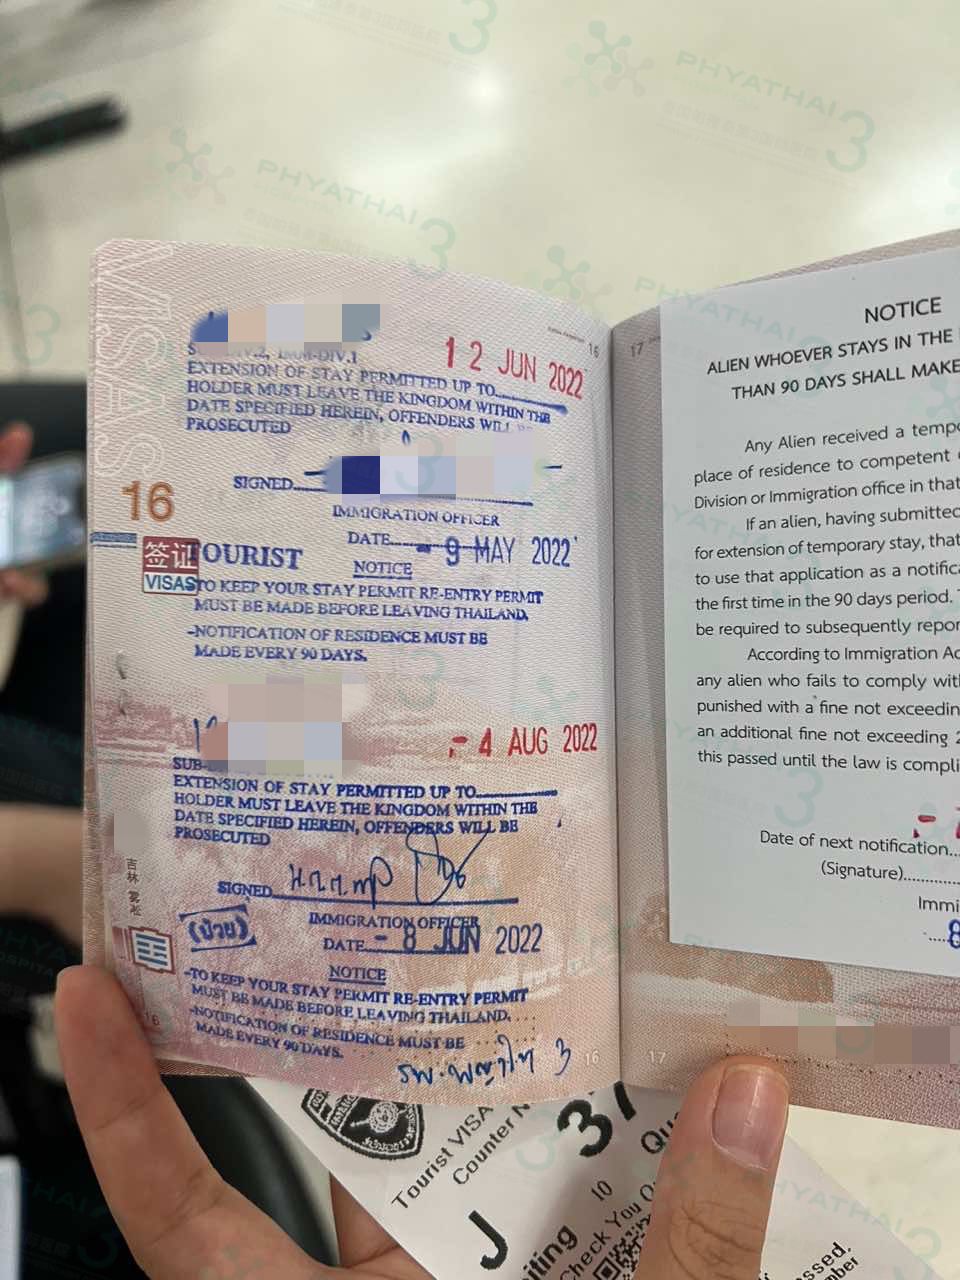 PHYATHAI 3
VISAS
16
12 JUN 2022
EXTENSION OF STAY PERMITTED UP TO
HOLDER MUST LEAVE THE KINGDOM WITHIN THE
DATE SPECIFIED HEREIN, OFFENDERS WILL BE
PROSECUTED
SIGNED
IMMIGRATION OFFICER
DATE - 9 MAY 2022
16
签证
VISAS
TOURIST
NOTICE
TO KEEP YOUR STAY PERMIT RE-ENTRY PERMIT
MUST BE MADE BEFORE LEAVING THAILAND.
-NOTIFICATION OF RESIDENCE MUST BE
MADE EVERY 90 DAYS.
- 4 AUG 2022
SUB-
EXTENSION OF STAY PERMITTED UP TO
HOLDER MUST LEAVE THE KINGDOM WITHIN THE
DATE SPECIFIED HEREIN, OFFENDERS WILL BE
PROSECUTED
吉林 雾凇
SIGNED
IMMIGRATION OFFICER
(ป่วย)
DATE - 8 JUN 2022
NOTICE
-TO KEEP YOUR STAY PERMIT RE-ENTRY PERMIT
MUST BE MADE BEFORE LEAVING THAILAND.
-NOTIFICATION OF RESIDENCE MUST BE
MADE EVERY 90 DAYS.
16
16
17
NOTICE
ALIEN WHOEVER STAYS IN THE
THAN 90 DAYS SHALL MAKE
Any Alien received a temp
place of residence to competent
Division or Immigration office in that
If an alien, having submitted
for extension of temporary stay, that
to use that application as a notific
the first time in the 90 days period.
be required to subsequently repor
According to Immigration Ac
any alien who fails to comply wit
punished with a fine not exceedin
an additional fine not exceeding 2
this passed until the law is compli
Date of next notification
(Signature)
Immi
8
17
Tourist VISA
Counter N
37
J
10
Qu
iting
Check You
assed.
mber